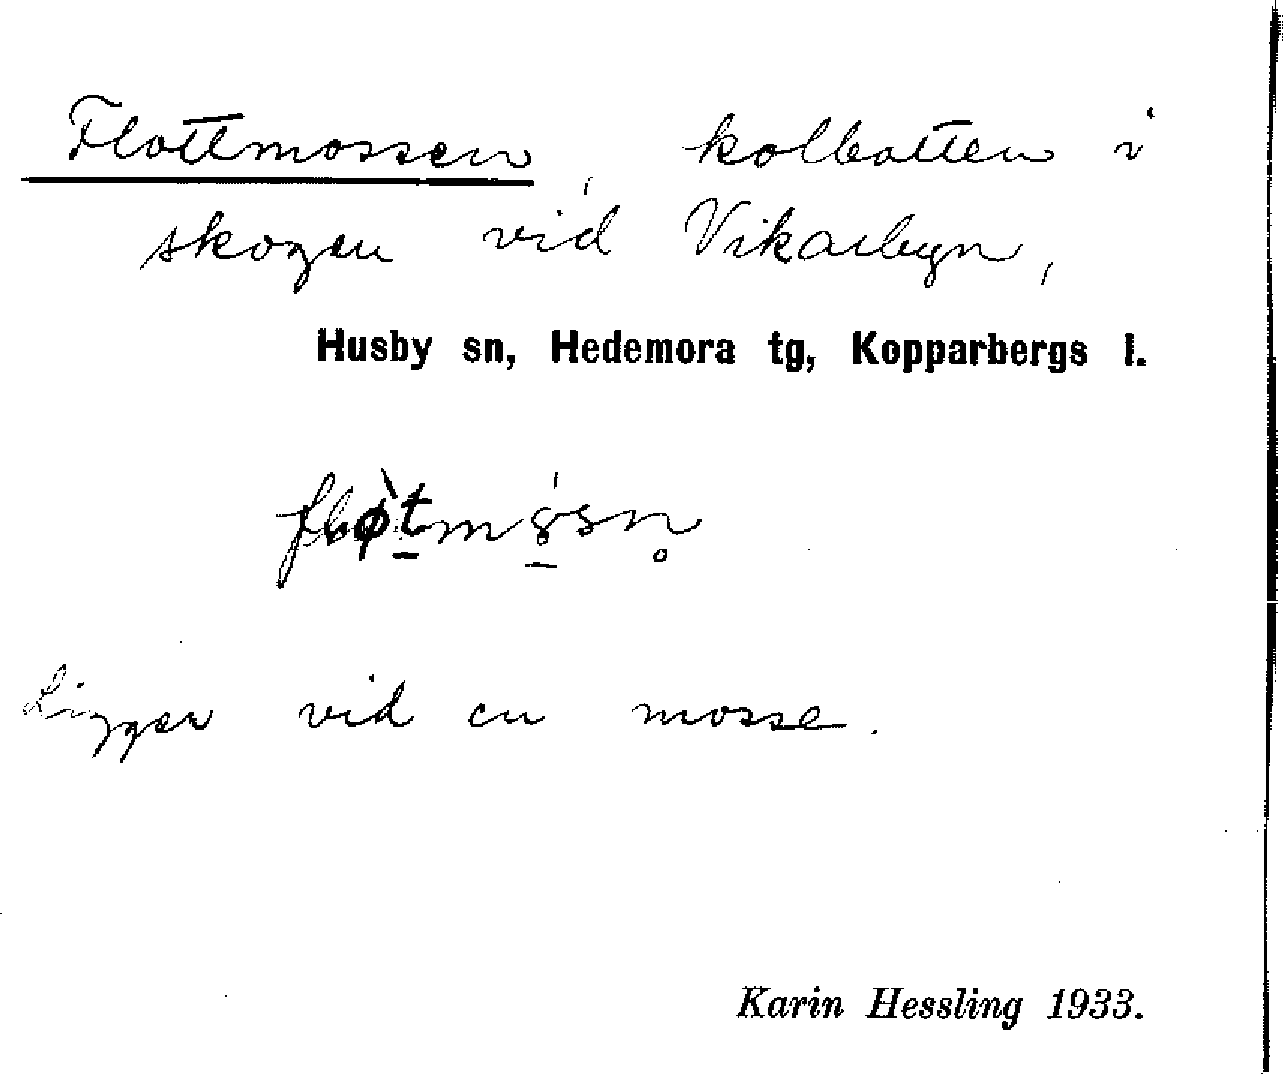 Flottmossen, kolbotten i
skogen vid Vikarbyn,
Husby sn, Hedemora tg, Kopparbergs l.
Ligger vid en mosse.
Karin Hessling 1933.